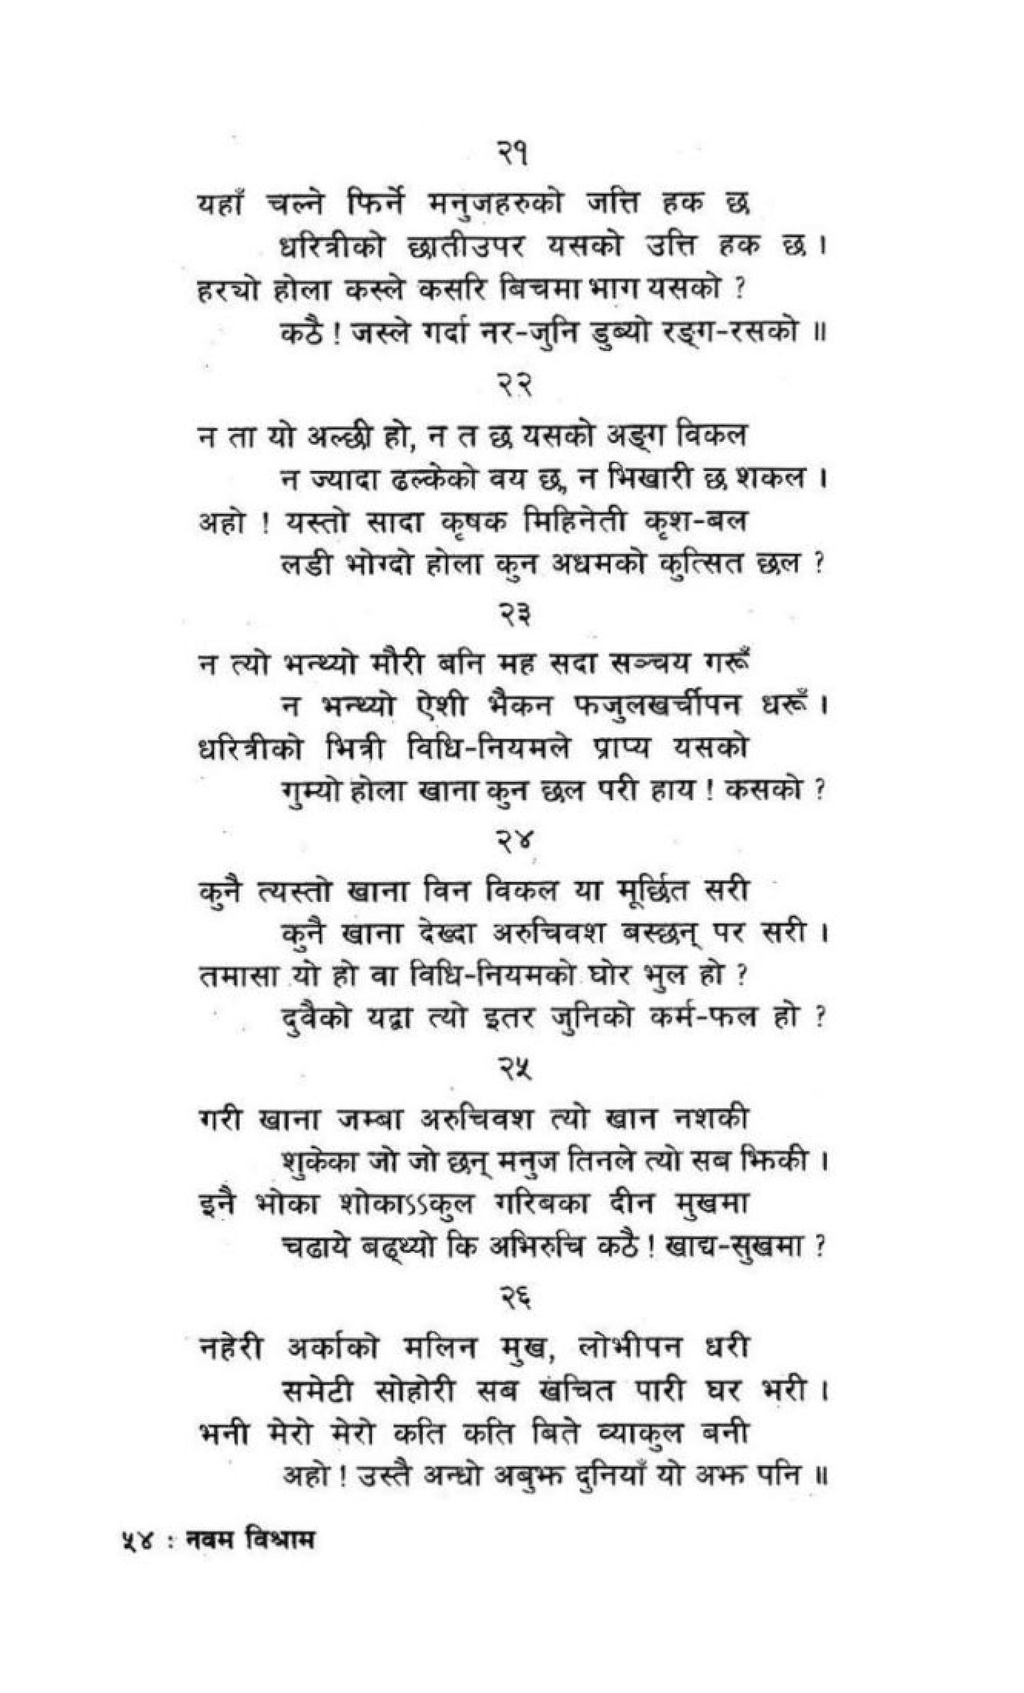 २१
यहाँ चल्ने फिर्ने मनुजहरुको जत्ति हक छ
धरित्रीको छातीउपर यसको उत्ति हक छ ।
हरयो होला कस्ले कसरि बिचमा भाग यसको ?
कठै ! जस्ले गर्दा नर-जुनि डुब्यो रङ्ग-रसको ॥
२२
न ता यो अल्छी हो, न त छ यसको अङ्ग विकल
न ज्यादा ढल्केको वय छ, न भिखारी छ शकल ।
अहो ! यस्तो सादा कृषक मिहिनेती कृश-बल
लडी भोग्दो होला कुन अधमको कुत्सित छल ?
२३
न त्यो भन्थ्यो मौरी बनि मह सदा सञ्चय गरूँ
न भन्थ्यो ऐशी भैकन फजुलखर्चीपन धरूँ ।
धरित्रीको भित्री विधि-नियमले प्राप्य यसको
गुम्यो होला खाना कुन छल परी हाय ! कसको ?
२४
कुनै त्यस्तो खाना विन विकल या मूर्छित सरी
कुनै खाना देख्दा अरुचिवश बस्छन् पर सरी ।
तमासा यो हो वा विधि-नियमको घोर भुल हो ?
दुवैको यद्वा त्यो इतर जुनिको कर्म-फल हो ?
२५
गरी खाना जम्बा अरुचिवश त्यो खान नशकी
शुकेका जो जो छन् मनुज तिनले त्यो सब झिकी ।
इनै भोका शोकाऽऽकुल गरिबका दीन मुखमा
चढाये बढ्थ्यो कि अभिरुचि कठै ! खाद्य-सुखमा ?
२६
नहेरी अर्काको मलिन मुख, लोभीपन धरी
समेटी सोहोरी सब खंचित पारी घर भरी ।
भनी मेरो मेरो कति कति बिते व्याकुल बनी
अहो ! उस्तै अन्धो अबुझ दुनियाँ यो अझ पनि ॥
५४ : नवम विश्राम